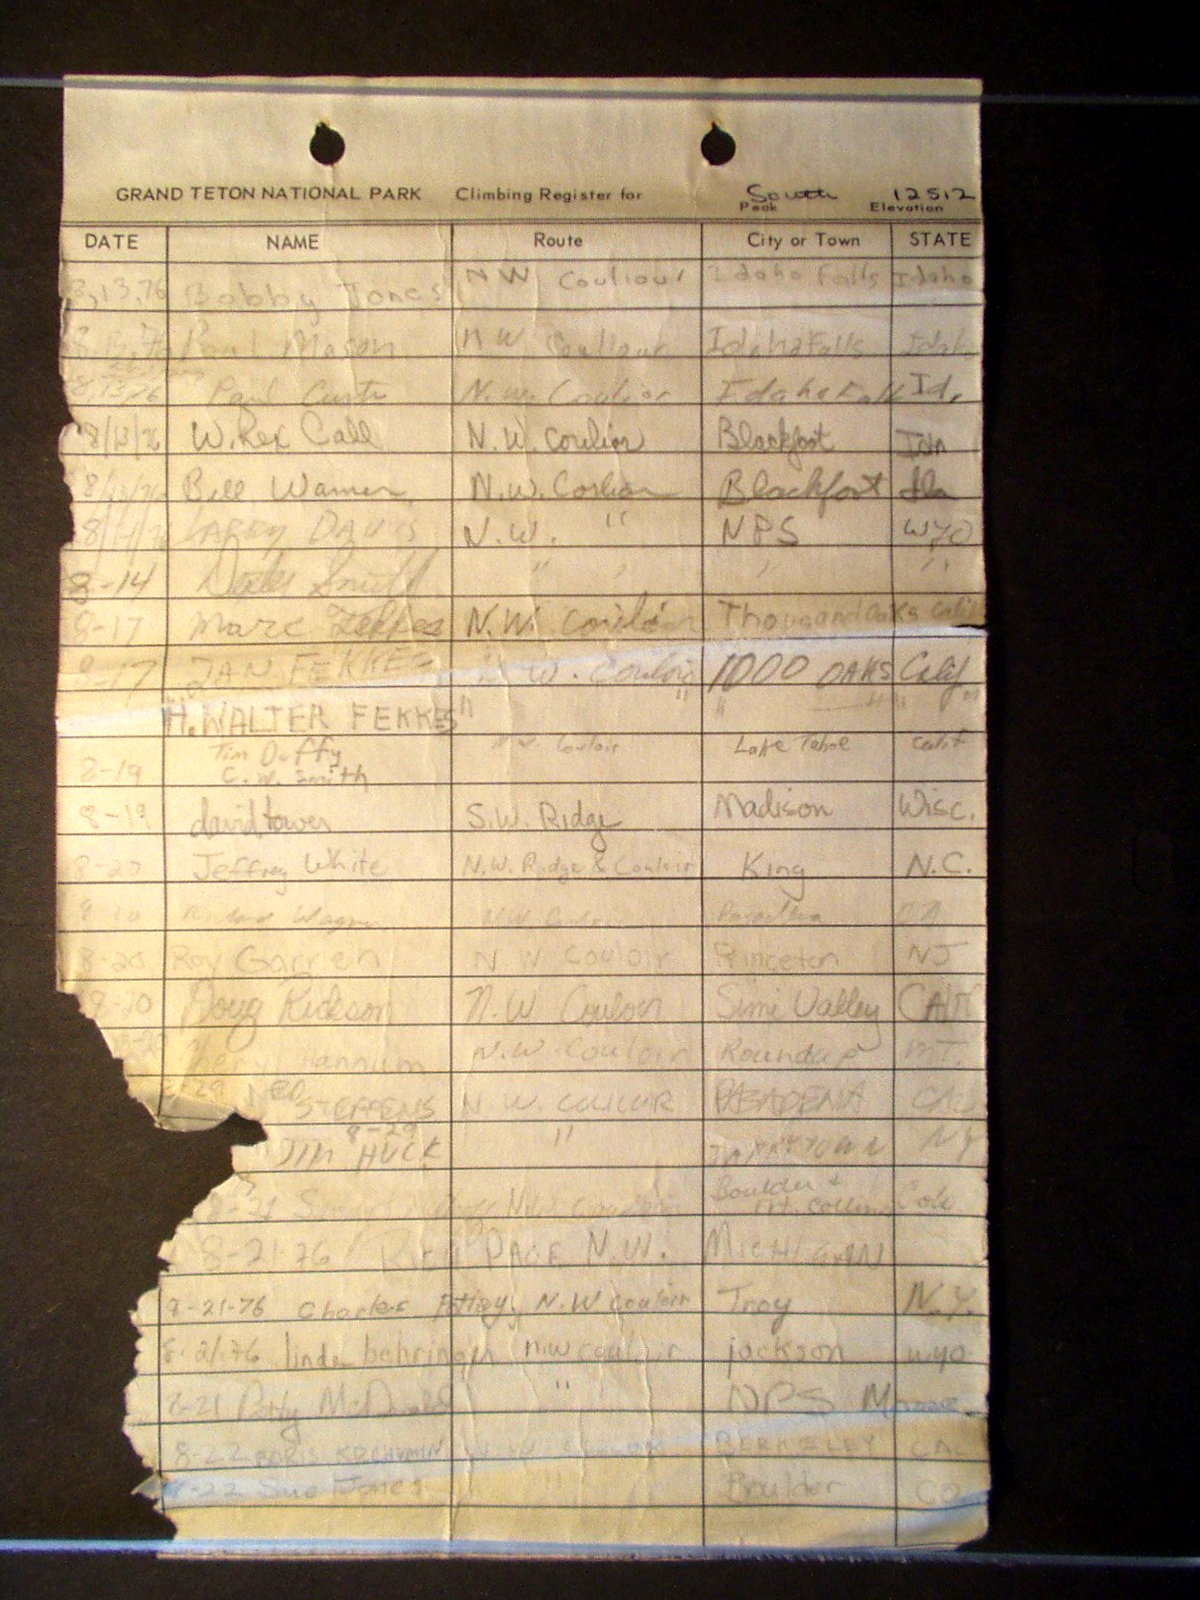 South 12512
GRAND TETON NATIONAL PARK Climbing Register for Peak Elevation
DATE NAME Route City or Town STATE
8,13,76 Bobby Jones NW Couliour Idaho Falls Idaho
Paul Mason NW Couliour Idaho Falls Idah
8,13,76 Paul Curtis N.W. Coulior Idaho Falls Id.
8/13/76 W. Rex Call N.W. Coulior Blackfoot Ida
8/13/76 Bill Warner N.W. Coulior Blackfoot Ida
8/14/76 LARRY DAVIS N.W. " NPS WYO
8-14 Smith " " " "
8-17 Marc Fekkes N.W. Couloir Thousand Oaks Calif
8-17 JAN FEKKES N.W. Couloir 1000 OAKS Calif.
H. WALTER FEKKES " " " "
Tim Duffy N.W. Couloir Lake Tahoe Calif
8-19 C. W. Smith
8-19 david tower S.W. Ridge Madison Wisc.
8-20 Jeffrey White N.W. Ridge & Couloir King N.C.
Wagner NW Couloir
8-20 Roy Garren N W Couloir Princeton NJ
8-20 Doug N.W Couloir Simi Valley CALIF
8-20 Hannum N.W. Couloir Roundup MT.
8-29 NED STEFFENS N.W. COULOIR PASADENA CAL
8-29
JIM HUCK " TARRYTOWN NY
8-21 N.W. Boulder + Ft. Collins Colo
8-21-76 RICH PAGE N.W. MICHIGAN
8-21-76 Charles N.W couloir Troy N.Y.
8-21-76 linda behringer n.w couloir jackson wyo
8-21 Patty McDonald " NPS Moose
8-22 BORIS N.W. BERKELEY CAL
8-22 Sue Jones " Boulder CO